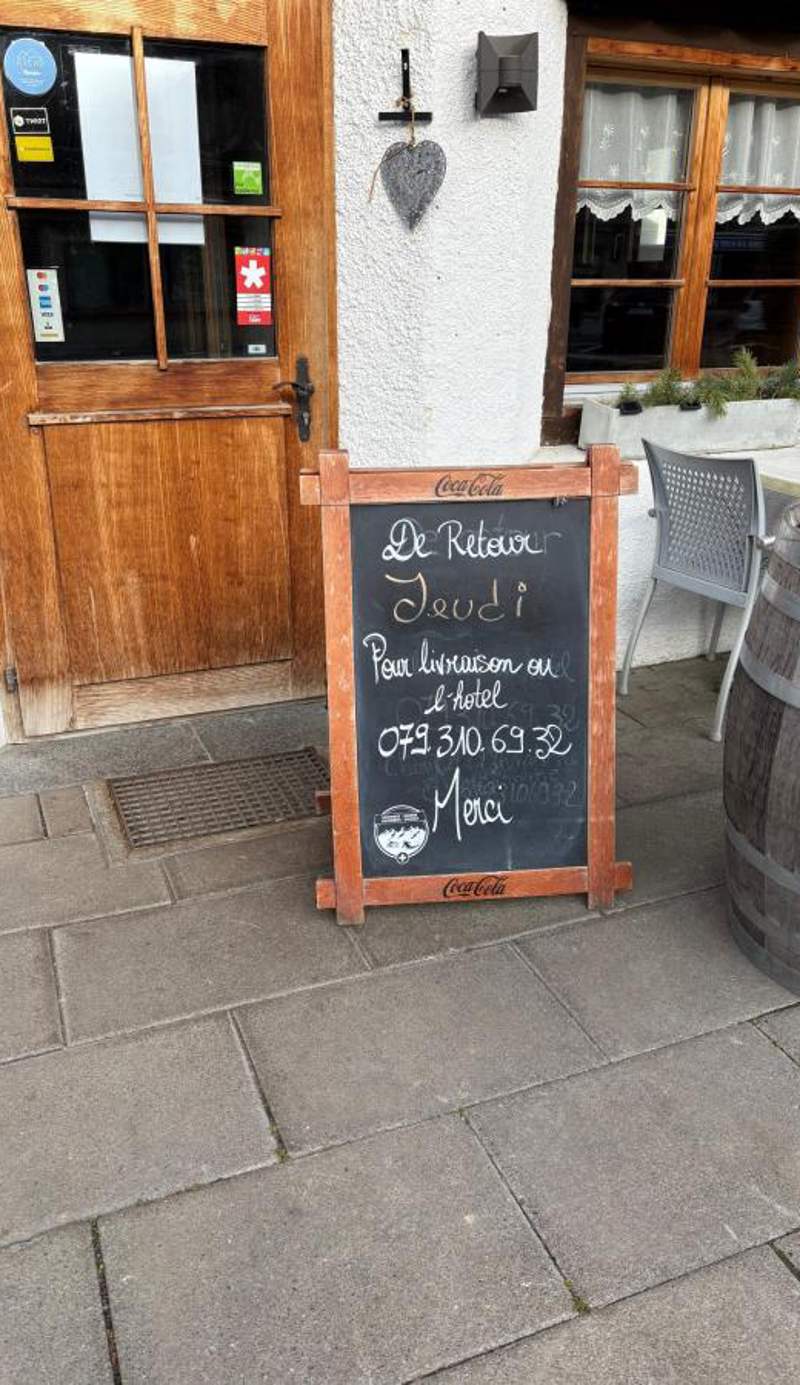 TWINT
VISA
Coca-Cola
De Retour
Jeudi
Pour livraison ou
l'hotel
079.310.69.32
Merci
Coca-Cola